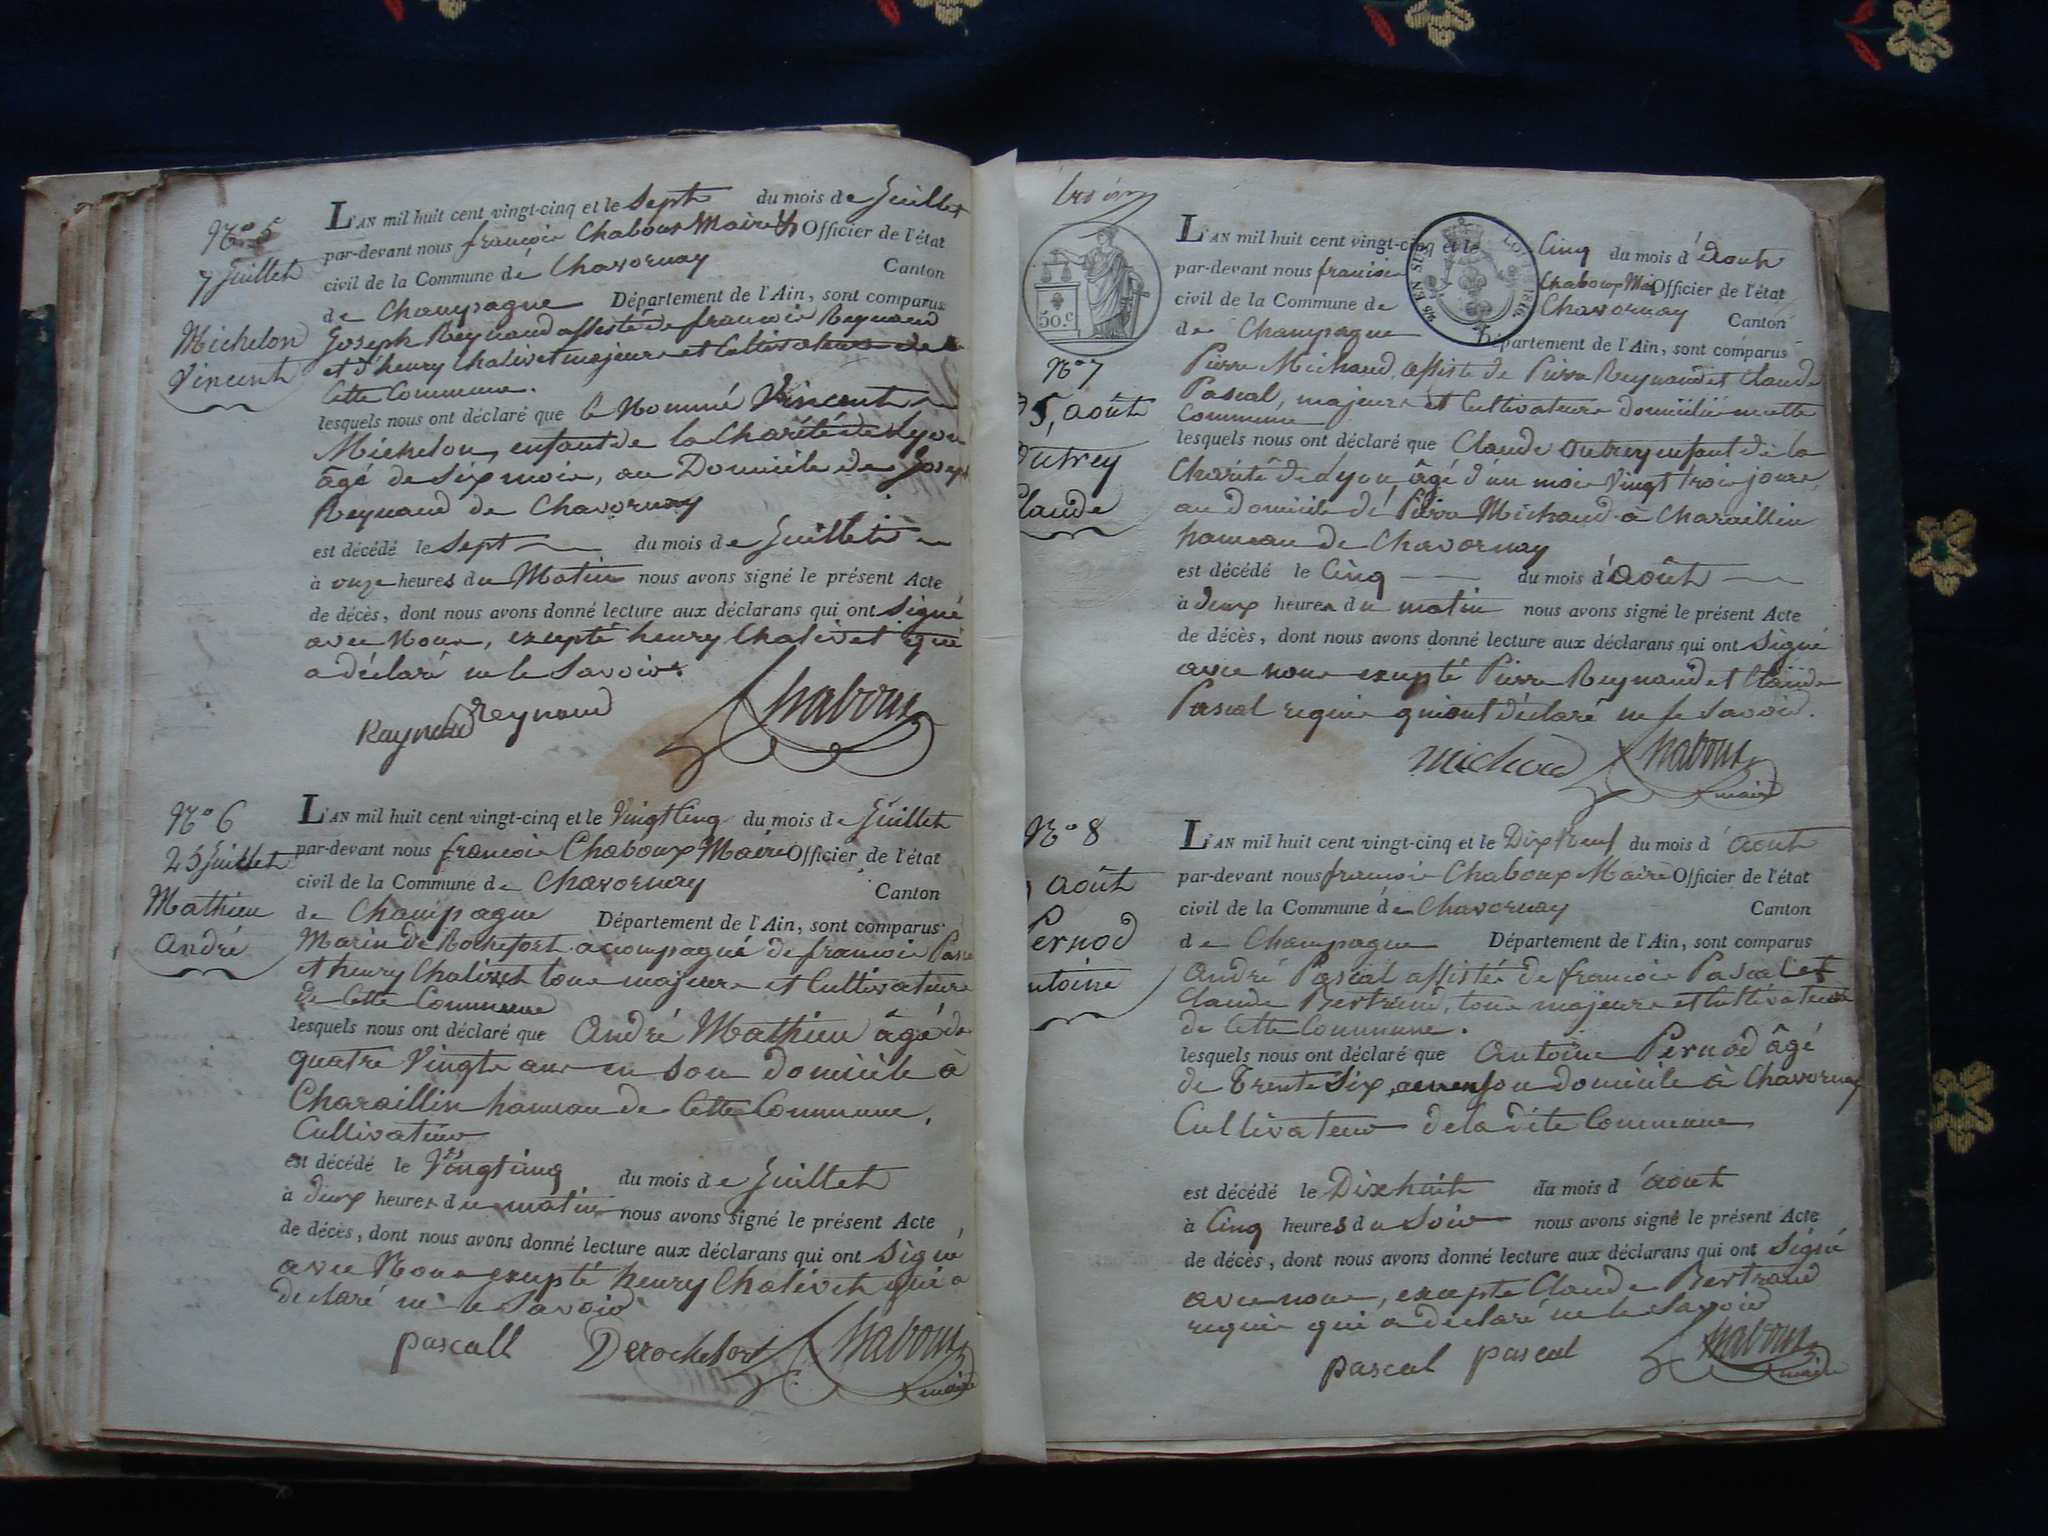 N.o 5
7 Juillet
Michelon
Vincent
L'AN mil huit cent vingt-cinq et le Sept du mois de Juillet
par-devant nous françois Chaboux Maire Officier de l'état
civil de la Commune de Chavornay Canton
de Champagne Département de l'Ain, sont comparus
Joseph Reynaud assisté de françois Reynaud
et d'henry Chalivet majeurs et Cultivateurs de
Cette Commune.
lesquels nous ont déclaré que le Nommé Vincent
Michelon, enfant de la Charité de Lyon
âgé de Six mois, au Domicile de Joseph
Reynaud de Chavornay
est décédé le Sept du mois de Juillet
à onze heures du Matin nous avons signé le présent Acte
de décès, dont nous avons donné lecture aux déclarans qui ont Signé
avec Nous, excepté henry Chalivet qui
a déclaré ne le Savoir.
Reynaud Chaboux
N.o 6
25 Juillet
Mathieu
andré
L'AN mil huit cent vingt-cinq et le Vingt Cinq du mois de Juillet
par-devant nous françois Chaboux Maire Officier de l'état
civil de la Commune de Chavornay Canton
de Champagne Département de l'Ain, sont comparus
Marin de Rochefort acompagné de françois
et henry Chalivet tous majeurs et Cultivateurs
de Cette Commune
lesquels nous ont déclaré que André Mathieu âgé de
quatre Vingts ans en son domicile à
Charaillin hameau de Cette Commune,
Cultivateur
est décédé le Vingt cinq du mois de Juillet
à deux heures du matin nous avons signé le présent Acte
de décès, dont nous avons donné lecture aux déclarans qui ont Signé
avec Nous excepté henry Chalivet qui a
déclaré ne le Savoir
pascall Derochefort Chaboux
maire
50.c
LOUIS 1816
N.o 7
5, août
outrey
Claude
L'AN mil huit cent vingt-cinq et le Cinq du mois d'août
par-devant nous francois Chaboux Officier de l'état
civil de la Commune de Chavornay Canton
de Champagne Département de l'Ain, sont comparus
Pierre Michaud, assisté de Pierre Reynaud et Claude
Pascal, majeurs et Cultivateurs domicilié
Commune
lesquels nous ont déclaré que Claude outrey enfant de la
Charité de Lyon âgé d'un mois Vingt trois jours,
au domicile de Pierre Michaud à Charaillin
hameau de Chavornay
est décédé le Cinq du mois d'août
à deux heures du matin nous avons signé le présent Acte
de décès, dont nous avons donné lecture aux déclarans qui ont Signé
avec nous excepté Pierre Reynaud et Claude
Pascal requis qui ont déclaré ne le Savoir.
michaud Chaboux
maire
N.o 8
août
Pernod
L'AN mil huit cent vingt-cinq et le Dix Neuf du mois d'août
par-devant nous francois Chaboux Maire Officier de l'état
civil de la Commune de Chavornay Canton
de Champagne Département de l'Ain, sont comparus
andré Pascal assistée de francois Pascal et
Claude tous majeurs et Cultivateurs
de Cette Commune.
lesquels nous ont déclaré que Antoine Pernod âgé
de Trente Six, en son domicile à Chavornay
Cultivateur de la dite Commune
est décédé le Dix huit du mois d'août
à Cinq heures du Soir nous avons signé le présent Acte
de décès, dont nous avons donné lecture aux déclarans qui ont Signé
avec nous, excepté Claude Bertrand
requis qui a déclaré ne le Savoir
pascal pascal Chaboux
maire